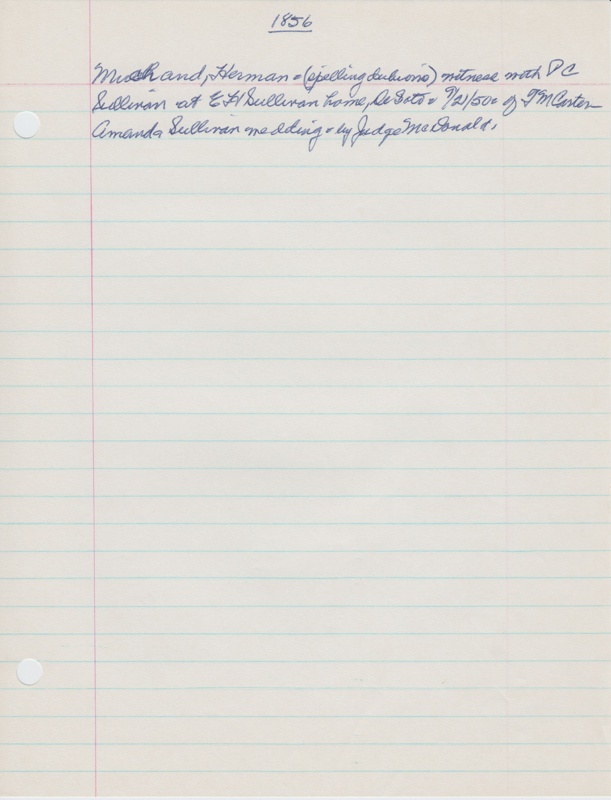 1856
Herman - (spelling dubious) witness with P C
Sullivan at E H Sullivan home, De Soto - 9/21/50 - of T M Carter
Amanda Sullivan wedding - by Judge McDonald.